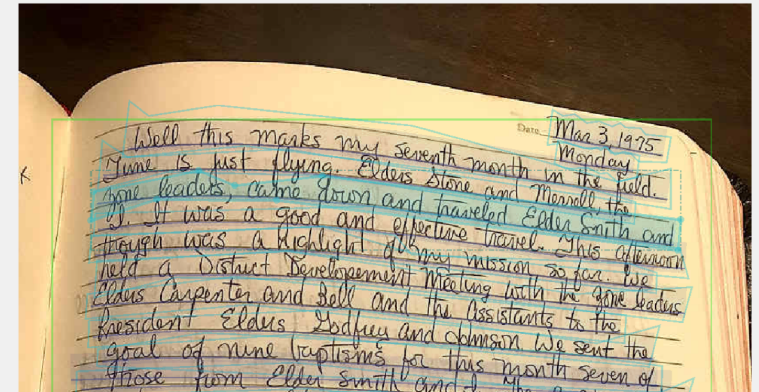 Date Mar 3, 1975
Monday
Well this marks my seventh month in the field.
Time is just flying. Elders Stone and Merrell, the
zone leaders, came down and traveled Elder Smith and
I. It was a good and effective travel. This afternoon
though was a highlight of my mission so far. We
held a District Developement Meeting with the zone leaders
Elders Carpenter and Bell and the Assistants to the
President Elders Godfrey and Johnson We sent the
goal of nine baptisms for this month seven of
those from Elder Smith and